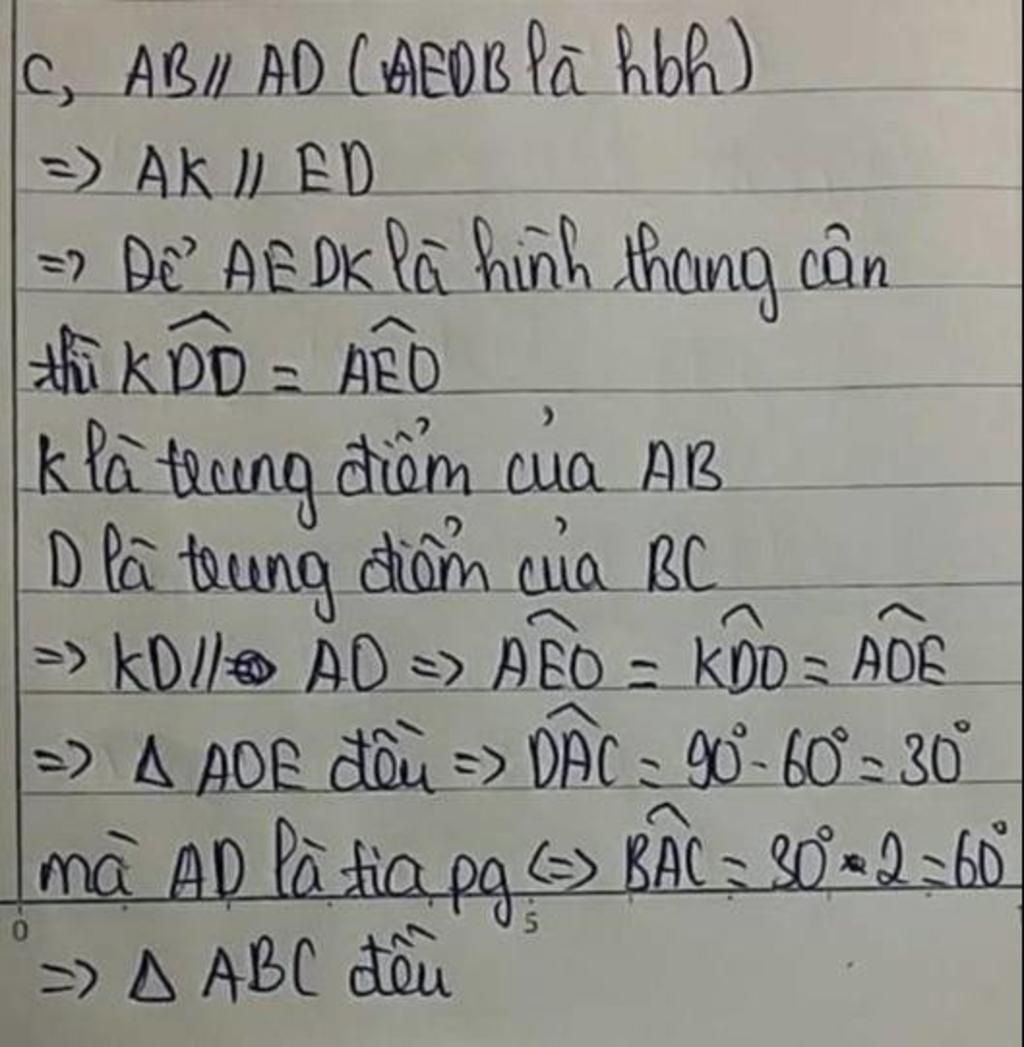 c, AB // AD (AEDB là hbh)
=> AK // ED
=> Để AEDK là hình thang cân
thì KDD = AEO
K là trung điểm của AB
D là trung điểm của BC
=> KD // AD => AEO = KDO = AOE
=> Δ AOE đều => DAC = 90° - 60° = 30°
mà AD là tia pg <=> BAC = 30° . 2 = 60°
0 5
=> Δ ABC đều